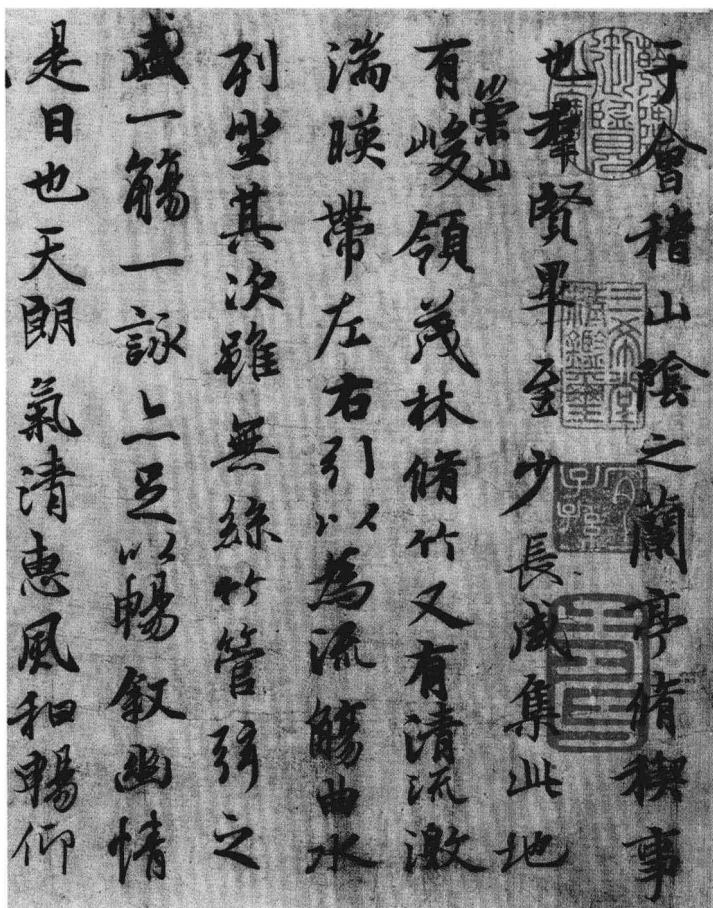 于會稽山陰之蘭亭脩稧事
也羣賢畢至少長咸集此地
有崇山峻領茂林脩竹又有清流激
湍暎帶左右引以為流觴曲水
列坐其次雖無絲竹管弦之
盛一觴一詠亦足以暢敘幽情
是日也天朗氣清惠風和暢仰
三希堂
精鑑璽
宜
子孫